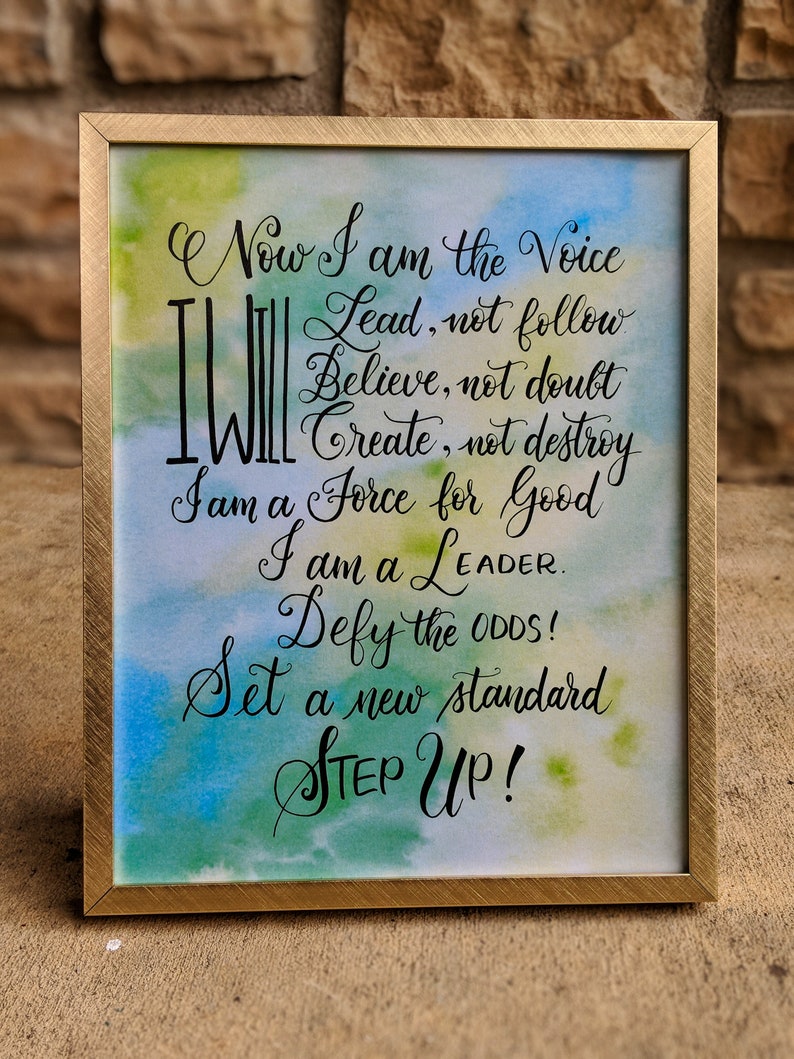 Now I am the Voice
I WILL
Lead, not follow
Believe, not doubt
Create, not destroy
I am a Force for Good
I am a LEADER.
Defy the ODDS!
Set a new standard
STEP UP!